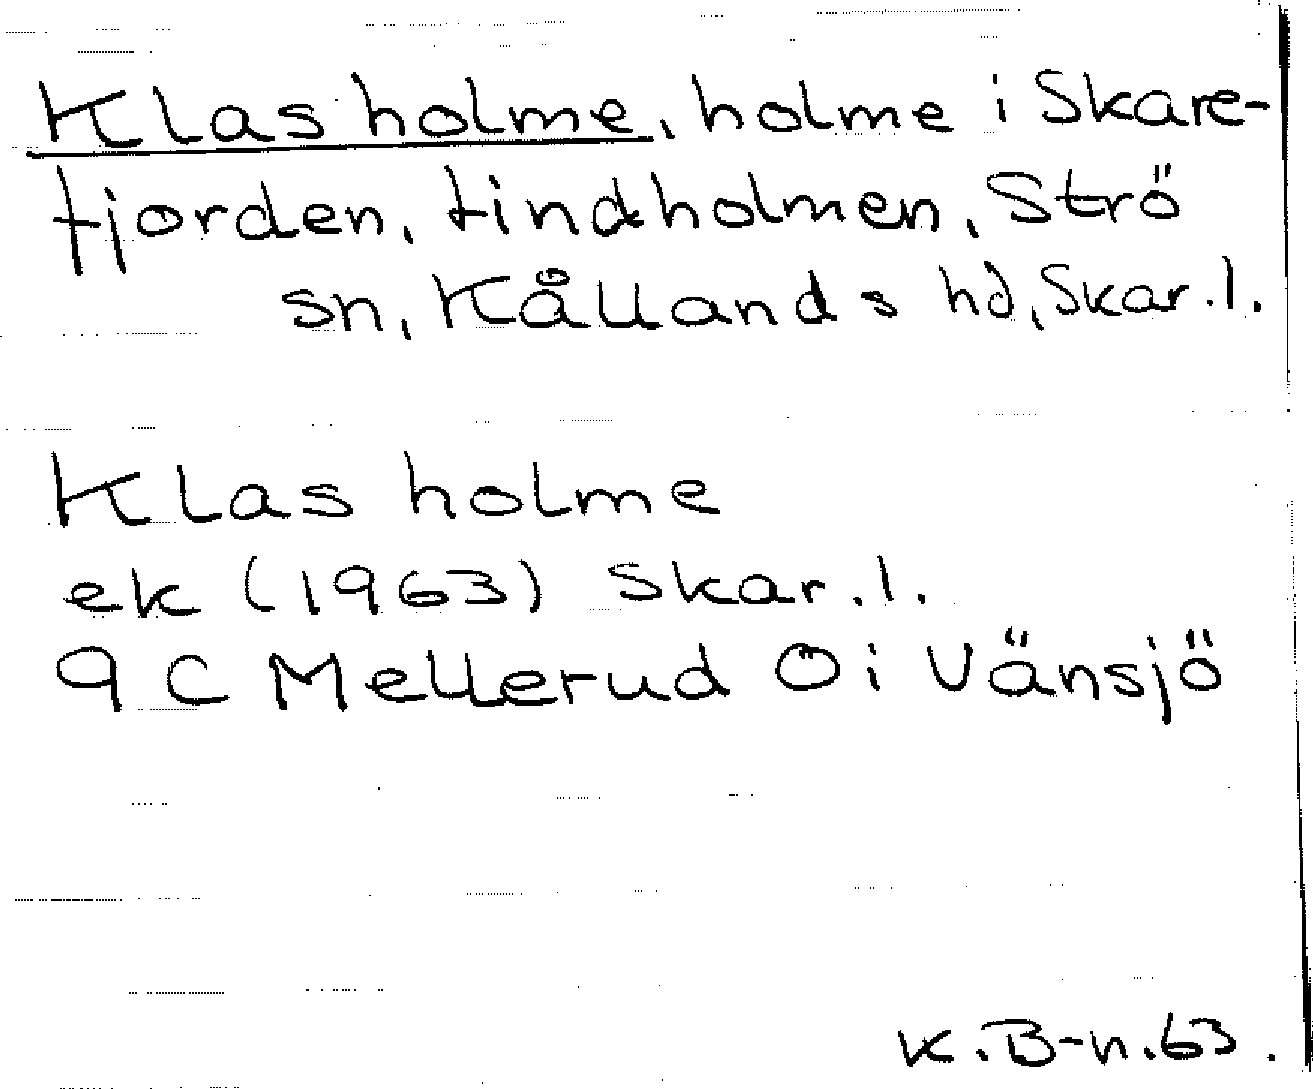 Klas holme, holme i Skare-
fjorden, Lindholmen, Strö
sn, Kållands hd, Skar. l.
Klas holme
ek (1963) Skar. l.
9 C Mellerud Ö i Vänsjö
K. B-n. 63.